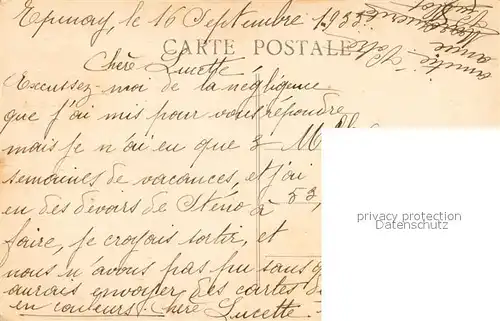 Epinay, le 16 Septembre 1933.
CARTE POSTALE
Chère Lucette
Excussez-moi de la négligence
que j'ai mis pour vous répondre
mais je n'ai eu que 3
semaines de vacances, et j'ai
eu des devoirs de Sténo à
faire, je croyais sortir, et
nous n'avons pas pu sans
aurais envoyer des cartes
en couleurs. Chère Lucette
53,
amitié
privacy protection
Datenschutz